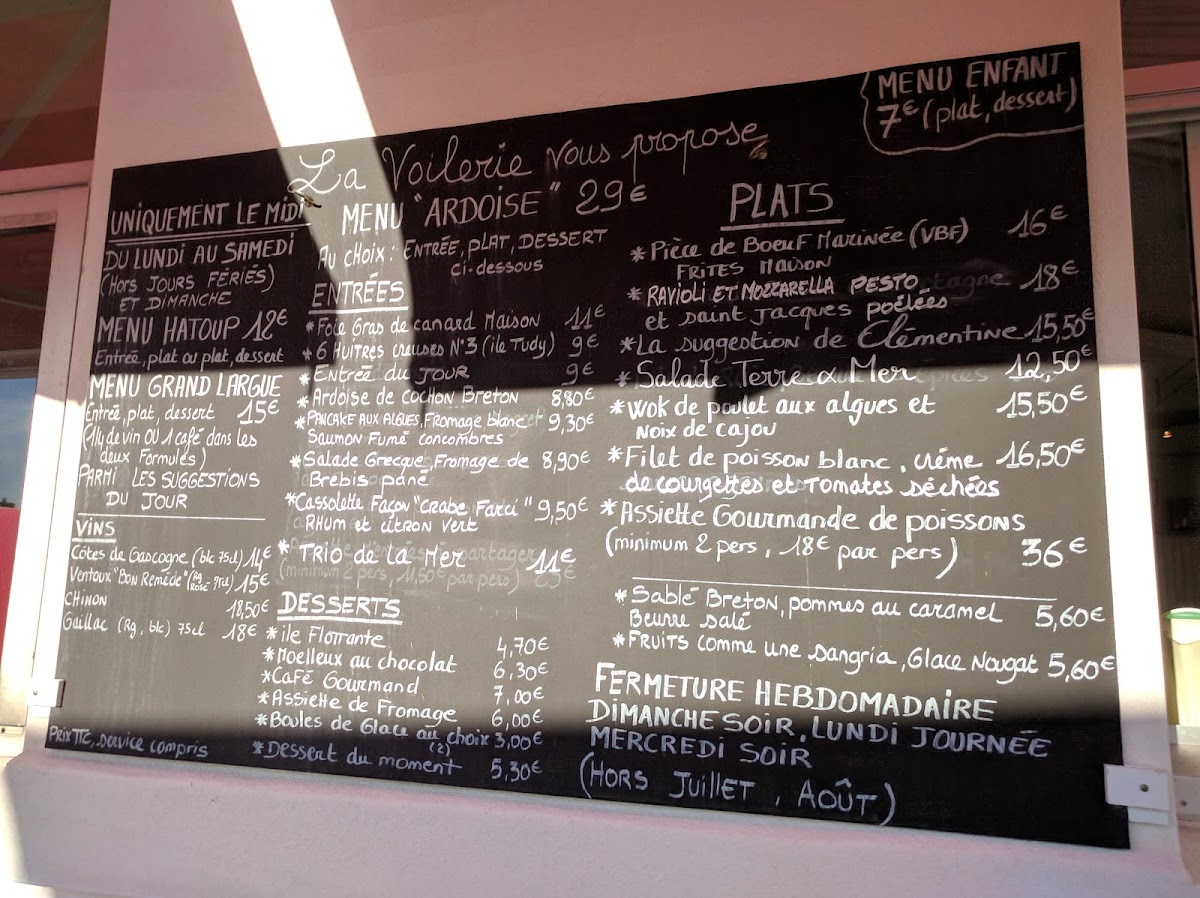 MENU ENFANT
7€ (plat, dessert)
La Voilerie vous propose
UNIQUEMENT LE MIDI
DU LUNDI AU SAMEDI
(HORS JOURS FÉRIÉS)
ET DIMANCHE
MENU HATOUP 12€
Entrée, plat ou plat, dessert
MENU GRAND LARGUE
Entrée, plat, dessert 15€
(1 Vy de vin OU 1 café dans les
deux Formules)
PARMI LES SUGGESTIONS
DU JOUR
VINS
Côtes de Gascogne (blc 75cl) 14€
Ventoux "BON REMÈDE" (Rg Rosé - 75cl) 15€
CHINON 18,50€
Gaillac (Rg, blc) 75cl 18€
PRIX TTC, service compris
MENU "ARDOISE" 29€
Au choix : ENTRÉE, PLAT, DESSERT
ci-dessous
ENTRÉES
* Foie Gras de canard Maison 11€
* 6 Huîtres creuses N°3 (ile Tudy) 9€
* Entrée du JOUR 9€
* Ardoise de cochon Breton 8,80€
* PANCAKE AUX ALGUES, Fromage blanc 9,30€
Saumon Fumé concombres
* Salade Grecque, Fromage de 8,90€
Brebis pané
* Cassolette Façon "Crabe Farci" 9,50€
RHUM et citron vert
* TRIO de La Mer 11€
(minimum 2 pers, 11,50€ par pers)
DESSERTS
* ile Flottante 4,70€
* Moelleux au chocolat 6,30€
* Café Gourmand 7,00€
* Assiette de Fromage 6,00€
* Boules de Glace au choix 3,00€
(2)
* Dessert du moment 5,30€
PLATS
* Pièce de Boeuf Marinée (VBF) 16€
FRITES MAISON
* RAVIOLI ET MOZZARELLA PESTO 18€
et saint Jacques poêlées
* La suggestion de Clémentine 15,50€
* Salade Terre & Mer 12,50€
* Wok de poulet aux algues et 15,50€
Noix de cajou
* Filet de poisson blanc, crème 16,50€
de courgettes et Tomates séchées
* Assiette Gourmande de poissons
(minimum 2 pers, 18€ par pers) 36€
* Sablé Breton, pommes au caramel 5,60€
Beurre salé
* FRUITS comme une sangria, Glace Nougat 5,60€
FERMETURE HEBDOMADAIRE
DIMANCHE SOIR, LUNDI JOURNÉE
MERCREDI SOIR
(HORS JUILLET, AOÛT)